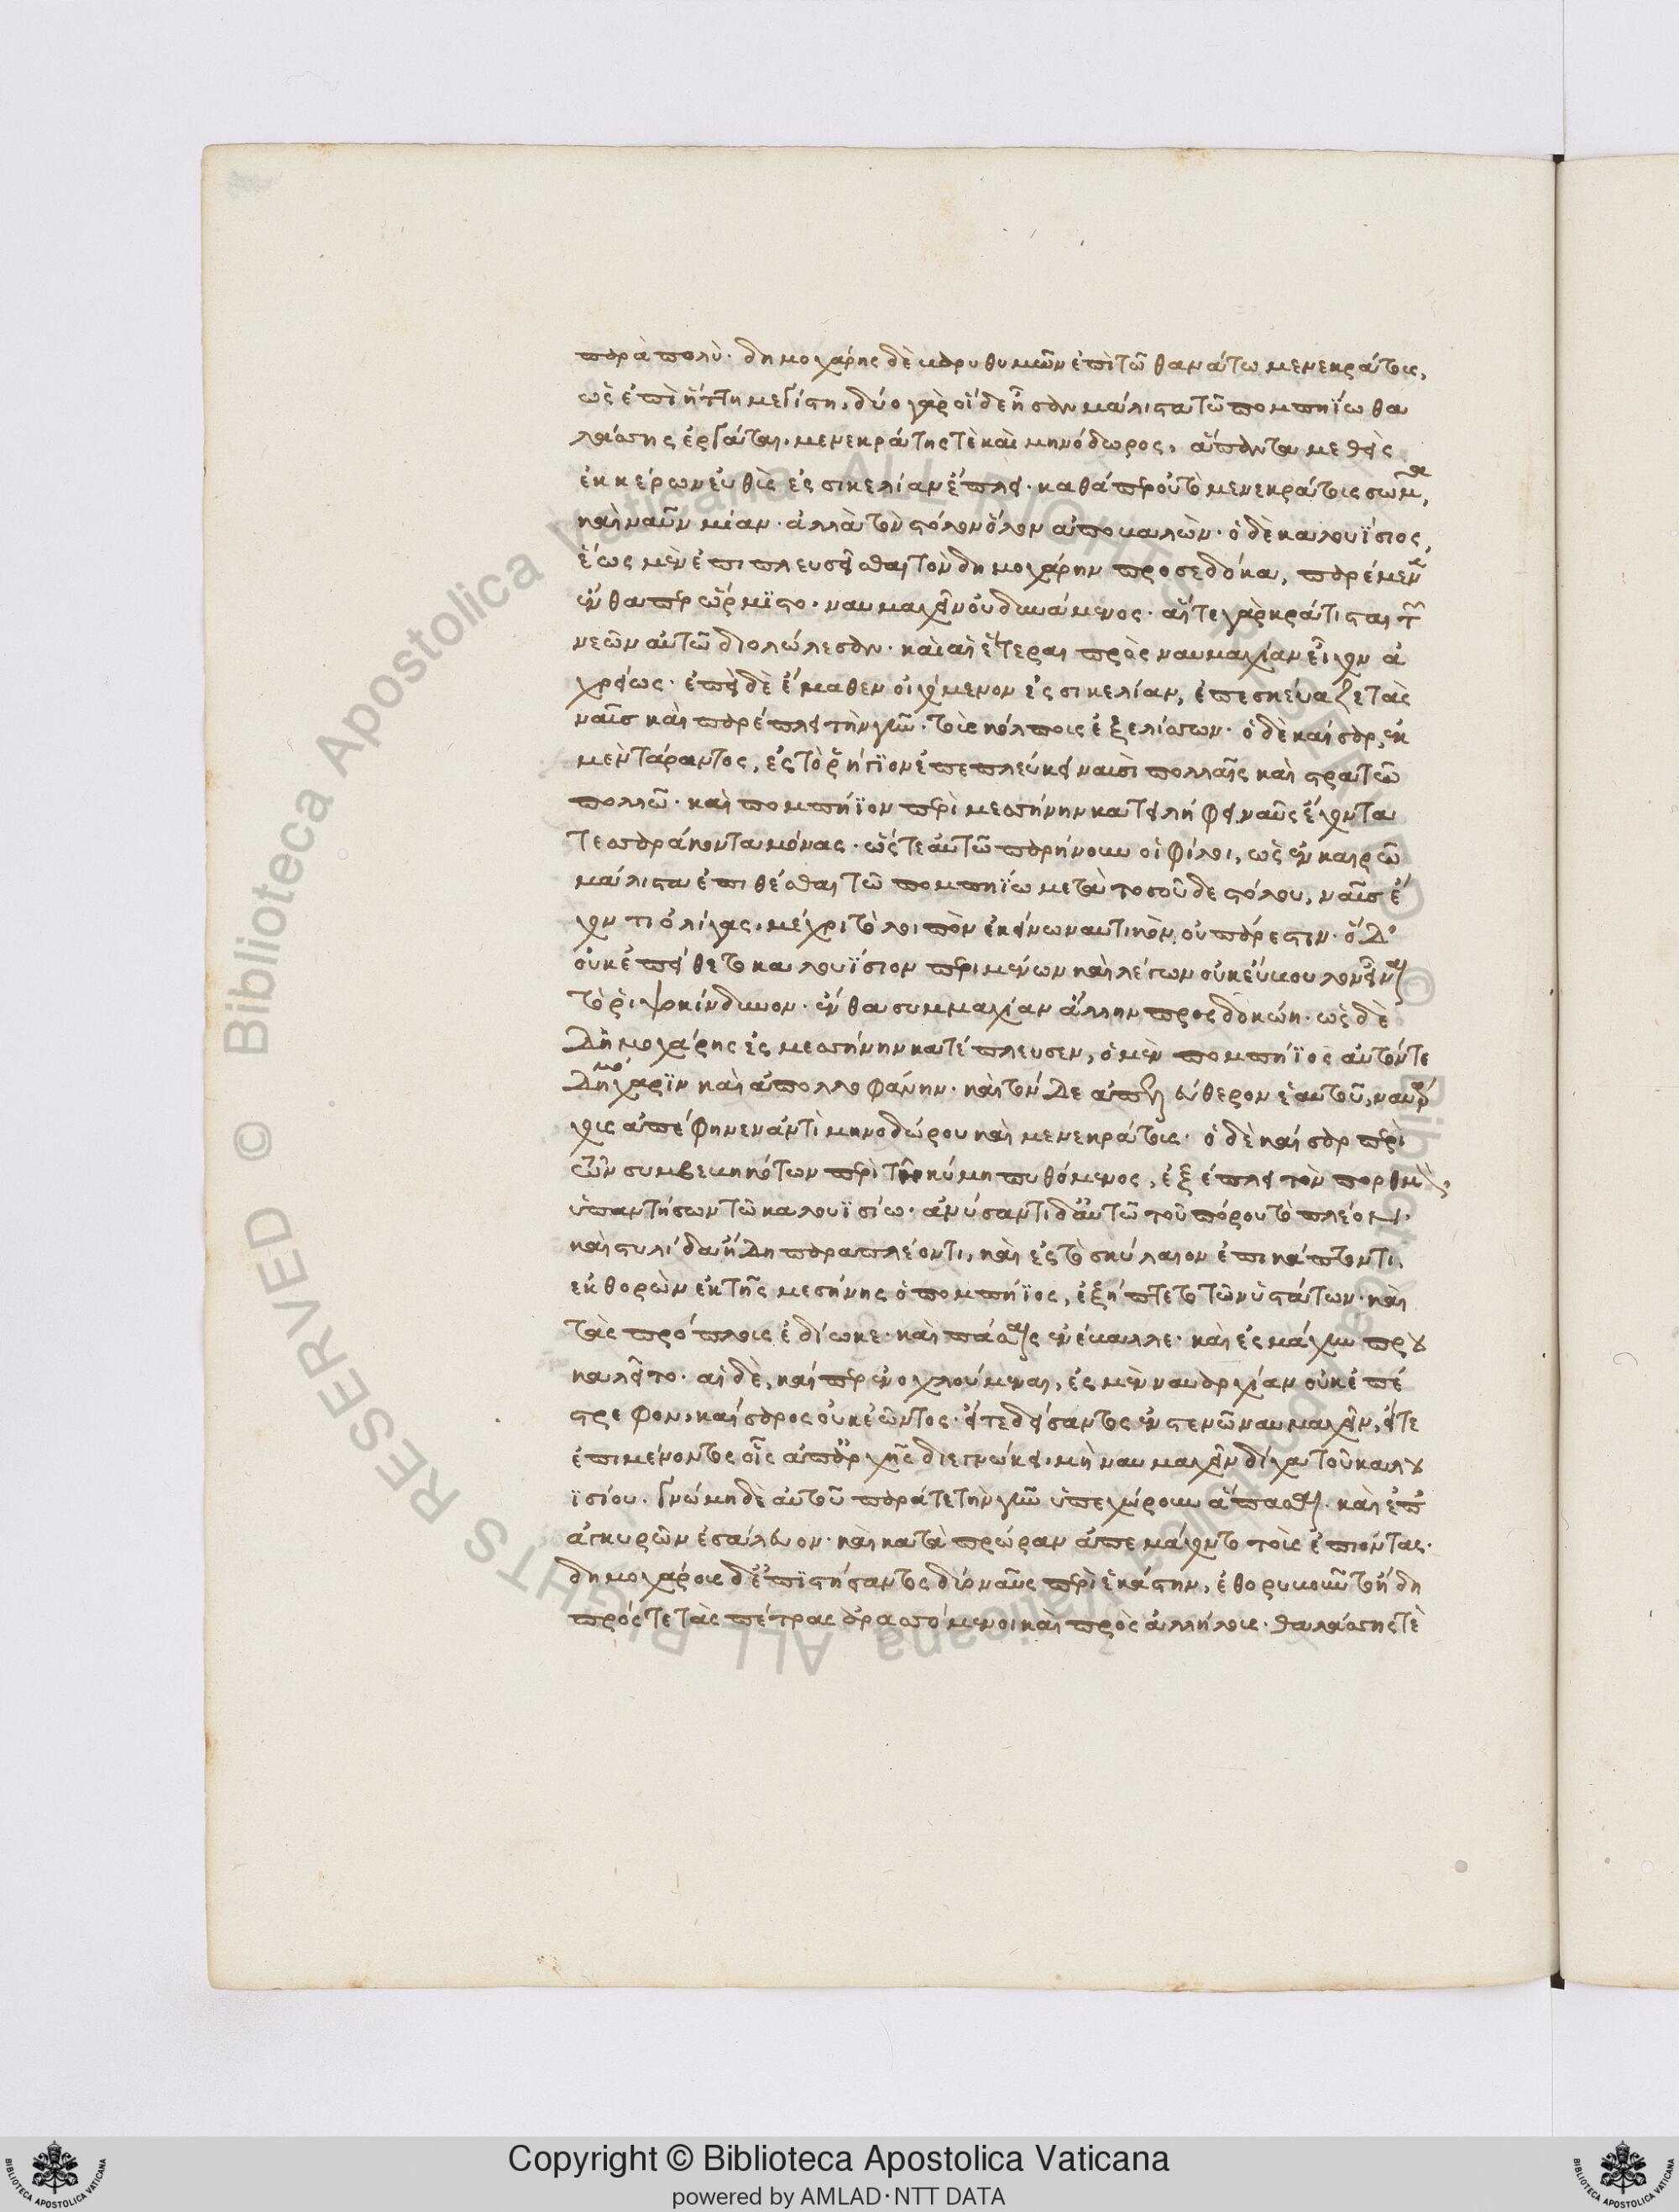 παρὰ πολύ. δημοχάρης δὲ κἀρυθυμῶν ἐπὶ τῶ θανάτω μενεκράτους,
ὡς ἐπὶ ἥττη μεγίστη, δύο γὰρ οἵδε ἦσαν μάλιστα τῶ πομπηΐω θα
λάσσης ἐργάται, μενεκράτης τὲ καὶ μηνόδωρος, ἅπαντα μεθεὶς
ἐκ χειρῶν εὐθὺς ἐς σικελίαν ἔπλει. καθάπερ οὐ τὸ μενεκράτους σῶμα,
καὶ ναῦν μίαν. ἀλλὰ τὸν στόλον ὅλον ἀποκαλὼν. ὁ δὲ καλουΐσιος,
ἕως μὲν ἐπιπλευσεῖσθαι τὸν δημοχάρην προσεδόκα, παρέμενεν
ἔνθαπερ ὥρμιστο. ναυμαχεῖν οὐ δυνάμενος. αἵ τε γὰρ κράτισται τῶν
νεῶν αὐτῶ διολώλεσαν. καὶ αἱ ἕτεραι πρὸς ναυμαχίαν εἶχον ἀ
χρείως. ἐπεὶ δὲ ἔμαθεν οἰχόμενον ἐς σικελίαν, ἐπεσκεύαζε τὰς
ναῦς καὶ παρέπλει τὴν γῆν. τοὺς κόλπους ἐξελίσσων. ὁ δὲ καῖσαρ, ἐκ
μὲν τάραντος, ἐς τὸ ῥήγϊον ἐπεπλεύκει ναυσὶ πολλαῖς καὶ στρατῶ
πολλῶ. καὶ πομπήϊον περὶ μεσσήνην κατειλήφει, ναῦς ἔχοντα
τεσσαράκοντα μόνας. ὥστε αὐτῶ παρήνουν οἱ φίλοι, ὡς ἐν καιρῶ
μάλιστα ἐπιθέσθαι τῶ πομπηΐω μετὰ τοσοῦδε στόλου, ναῦς ἔ
χοντι ὀλίγας, μέχρι τὸ λοιπὸν ἐκείνω ναυτικὸν, οὐ πάρεστιν. ὁ δ'
οὐκ ἐπείθετο καλουΐσιον περιμένων καὶ λέγων οὐκ εὔβουλον εἶναι
τὸ ῥιψοκίνδυνον. ἔνθα συμμαχίαν ἄλλην προσδοκώη. ὡς δὲ
δημοχάρης ἐς μεσσήνην κατέπλευσεν, ὁ μὲν πομπήϊος αὐτόν τε
δημοχάρϊν καὶ ἀπολλοφάνην. καὶ τόνδε ἀπελεύθερον ἑαυτοῦ, ναυάρ
χους ἀπέφηνεν ἀντὶ μηνοδώρου καὶ μενεκράτους. ὁ δὲ καῖσαρ περὶ
τῶν συμβεβηκότων περὶ τὴν κύμη πυθόμενος, ἐξέπλει τὸν πορθμὸν,
ὑπαντήσων τῶ καλουϊσίω. ἀνύσαντι δ' αὐτῶ τοῦ πόρου τὸ πλέον.
καὶ στυλίδα ἤδη παραπλέοντι, καὶ ἐς τὸ σκύλαιον ἐπικάπτοντι,
ἐκθορὼν ἐκ τῆς μεσήνης ὁ πομπήϊος, ἐξήπτετο τῶν ὑστάτων. καὶ
τὰς πρόπλους ἐδίωκε. καὶ πάσαις ἐνέβαλλε. καὶ ἐς μάχην πρου
καλεῖτο. αἱ δὲ, καίπερ ἐνοχλούμεναι, ἐς μὲν ναυαρχίαν οὐκ ἐπέ
στρεφον, καίσαρος οὐκ ἐῶντος. εἴτε δείσαντος ἐν στενῶ ναυμαχεῖν, εἴτε
ἐπιμένοντος οἷς ἀπ' ἀρχῆς διεγνώκει, μὴ ναυμαχεῖν δίχα τοῦ καλου
ϊσίου. γνώμη δὲ αὐτοῦ παρά τε τὴν γῆν ὑπεχώρουν ἅπασαι. καὶ ἐπ'
ἀγκυρῶν ἐσάλευον. καὶ κατὰ πρώραν ἀπεμάχοντο τοὺς ἐπιόντας.
δημοχάρους δ' ἐπιστήσαντος δύο ναῦς περὶ ἑκάστην, ἐθορυβοῦντο ἤδη
πρός τε τὰς πέτρας ἀρασσόμενοι καὶ πρὸς ἀλλήλους. θαλάσσης τὲ
Copyright © Biblioteca Apostolica Vaticana
powered by AMLAD·NTT DATA